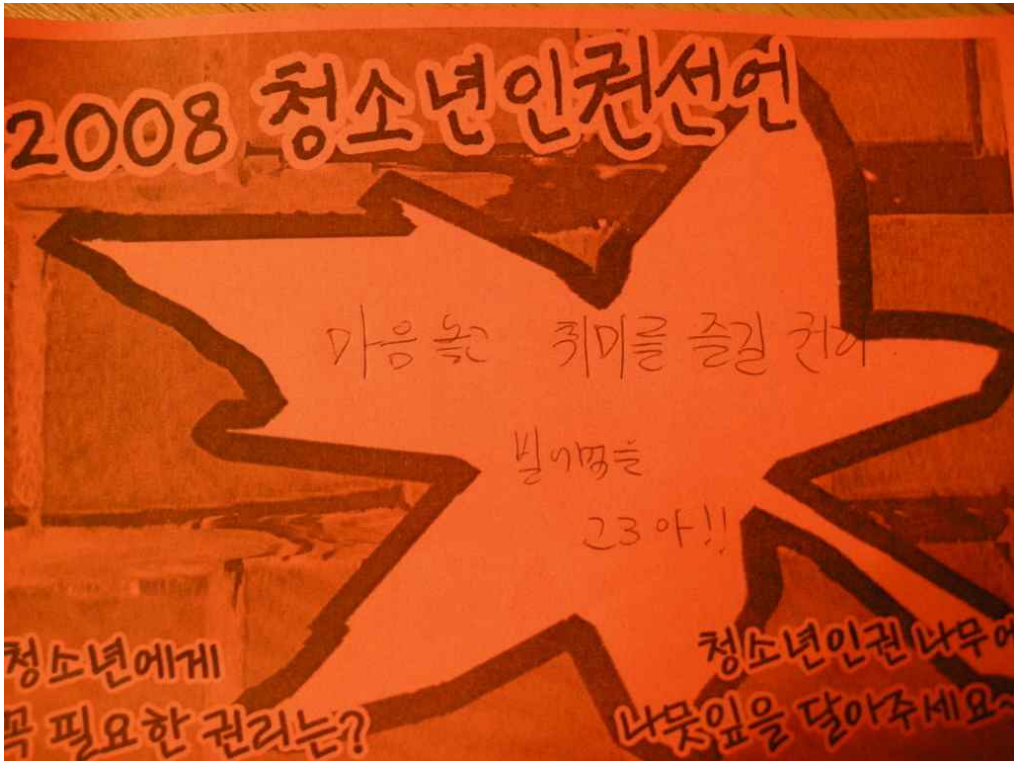 2008 청소년인권선언
마음 놓고 취미를 즐길 권리
빌어먹을
고3아!!
청소년에게
꼭 필요한 권리는?
청소년인권 나무에
나뭇잎을 달아주세요~